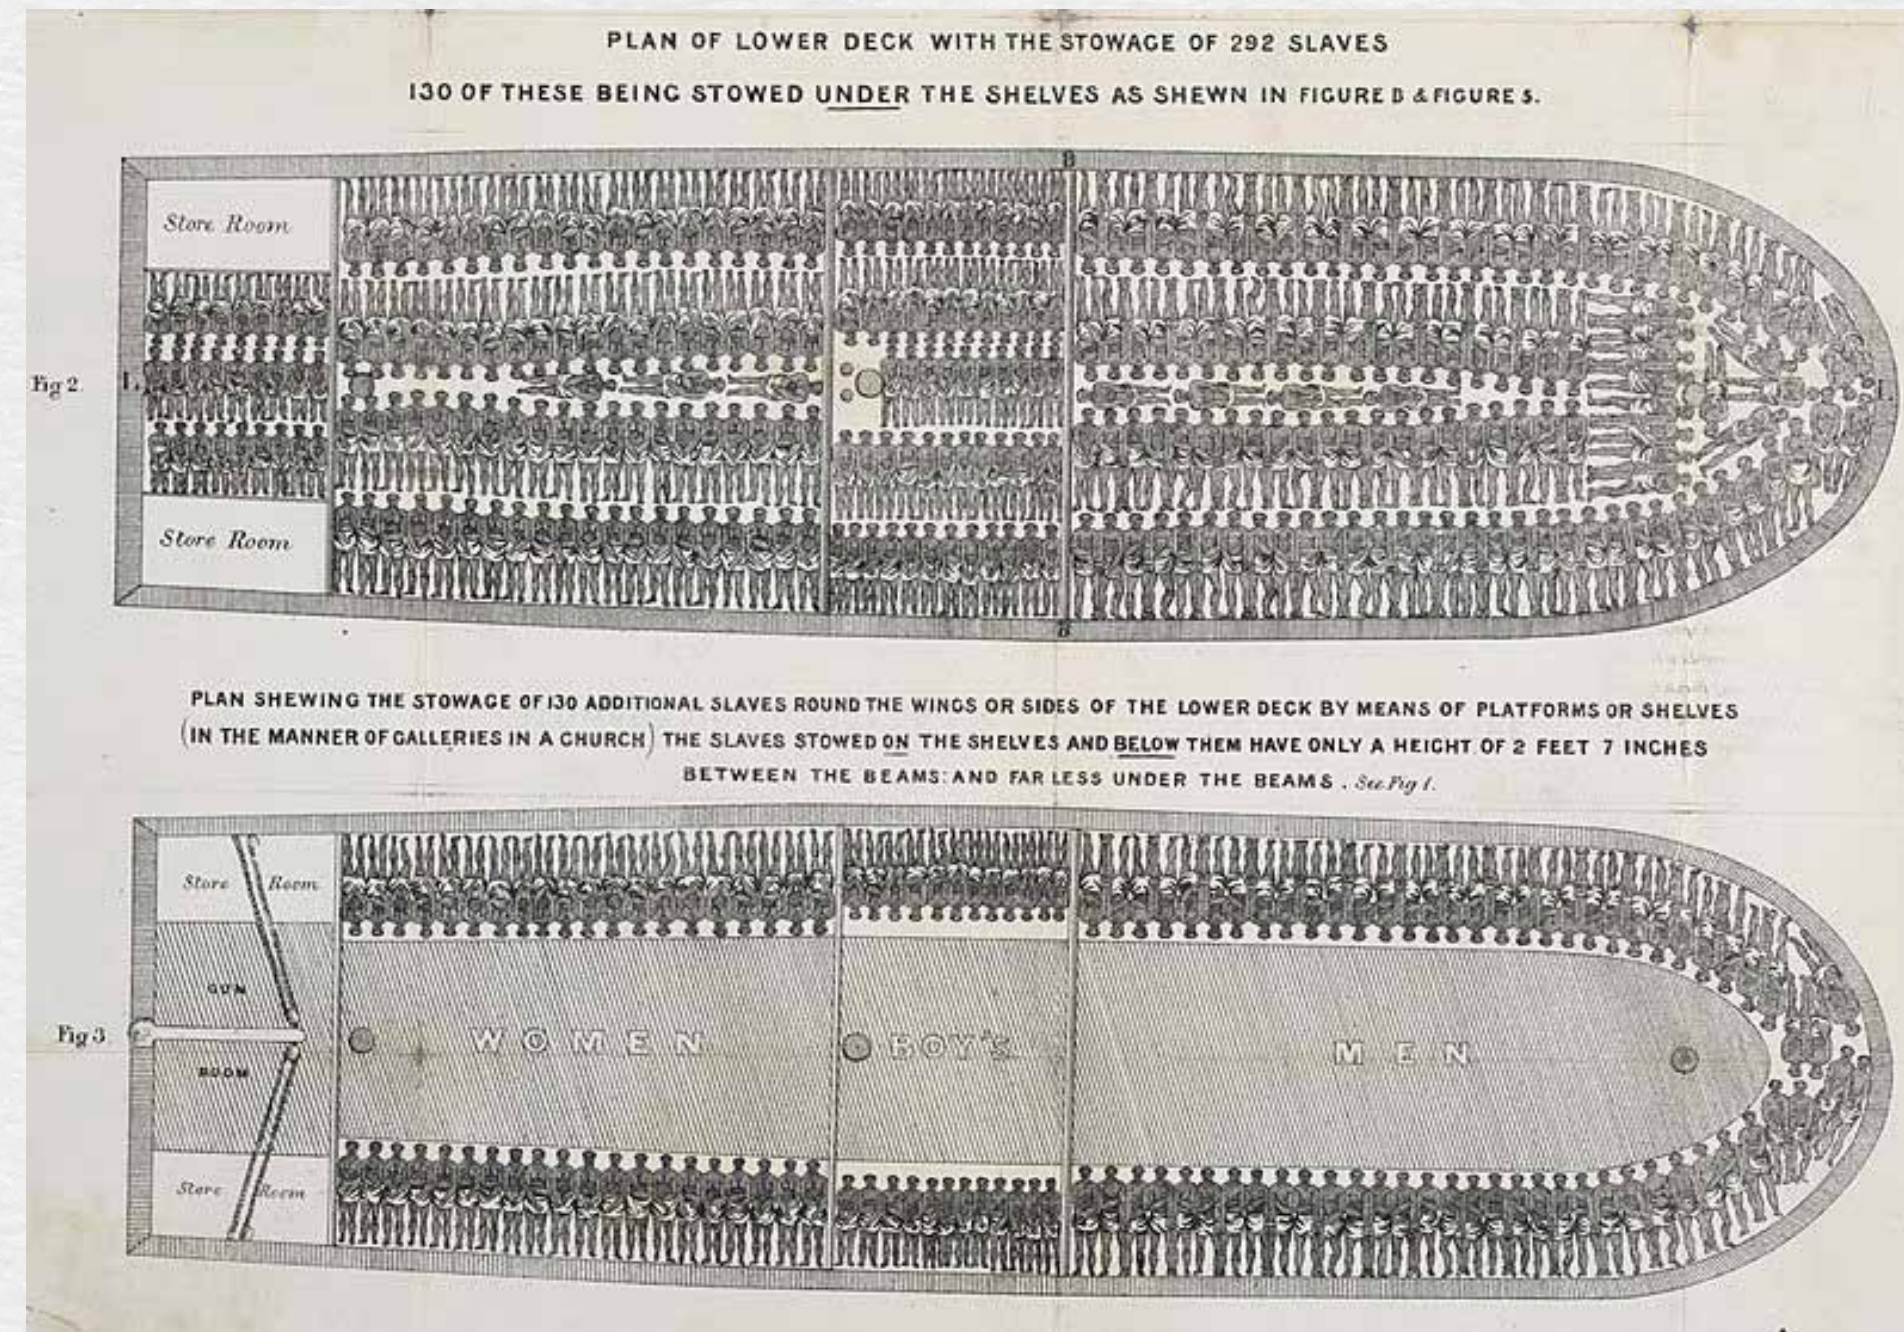 PLAN OF LOWER DECK WITH THE STOWAGE OF 292 SLAVES
130 OF THESE BEING STOWED UNDER THE SHELVES AS SHEWN IN FIGURE B & FIGURE 5.
B
Store Room
Fig 2.
Store Room
B
PLAN SHEWING THE STOWAGE OF 130 ADDITIONAL SLAVES ROUND THE WINGS OR SIDES OF THE LOWER DECK BY MEANS OF PLATFORMS OR SHELVES
(IN THE MANNER OF GALLERIES IN A CHURCH) THE SLAVES STOWED ON THE SHELVES AND BELOW THEM HAVE ONLY A HEIGHT OF 2 FEET 7 INCHES
BETWEEN THE BEAMS: AND FAR LESS UNDER THE BEAMS. See Fig 1.
Store Room
GUN
Fig 3
WOMEN BOY'S MEN
ROOM
Store Room